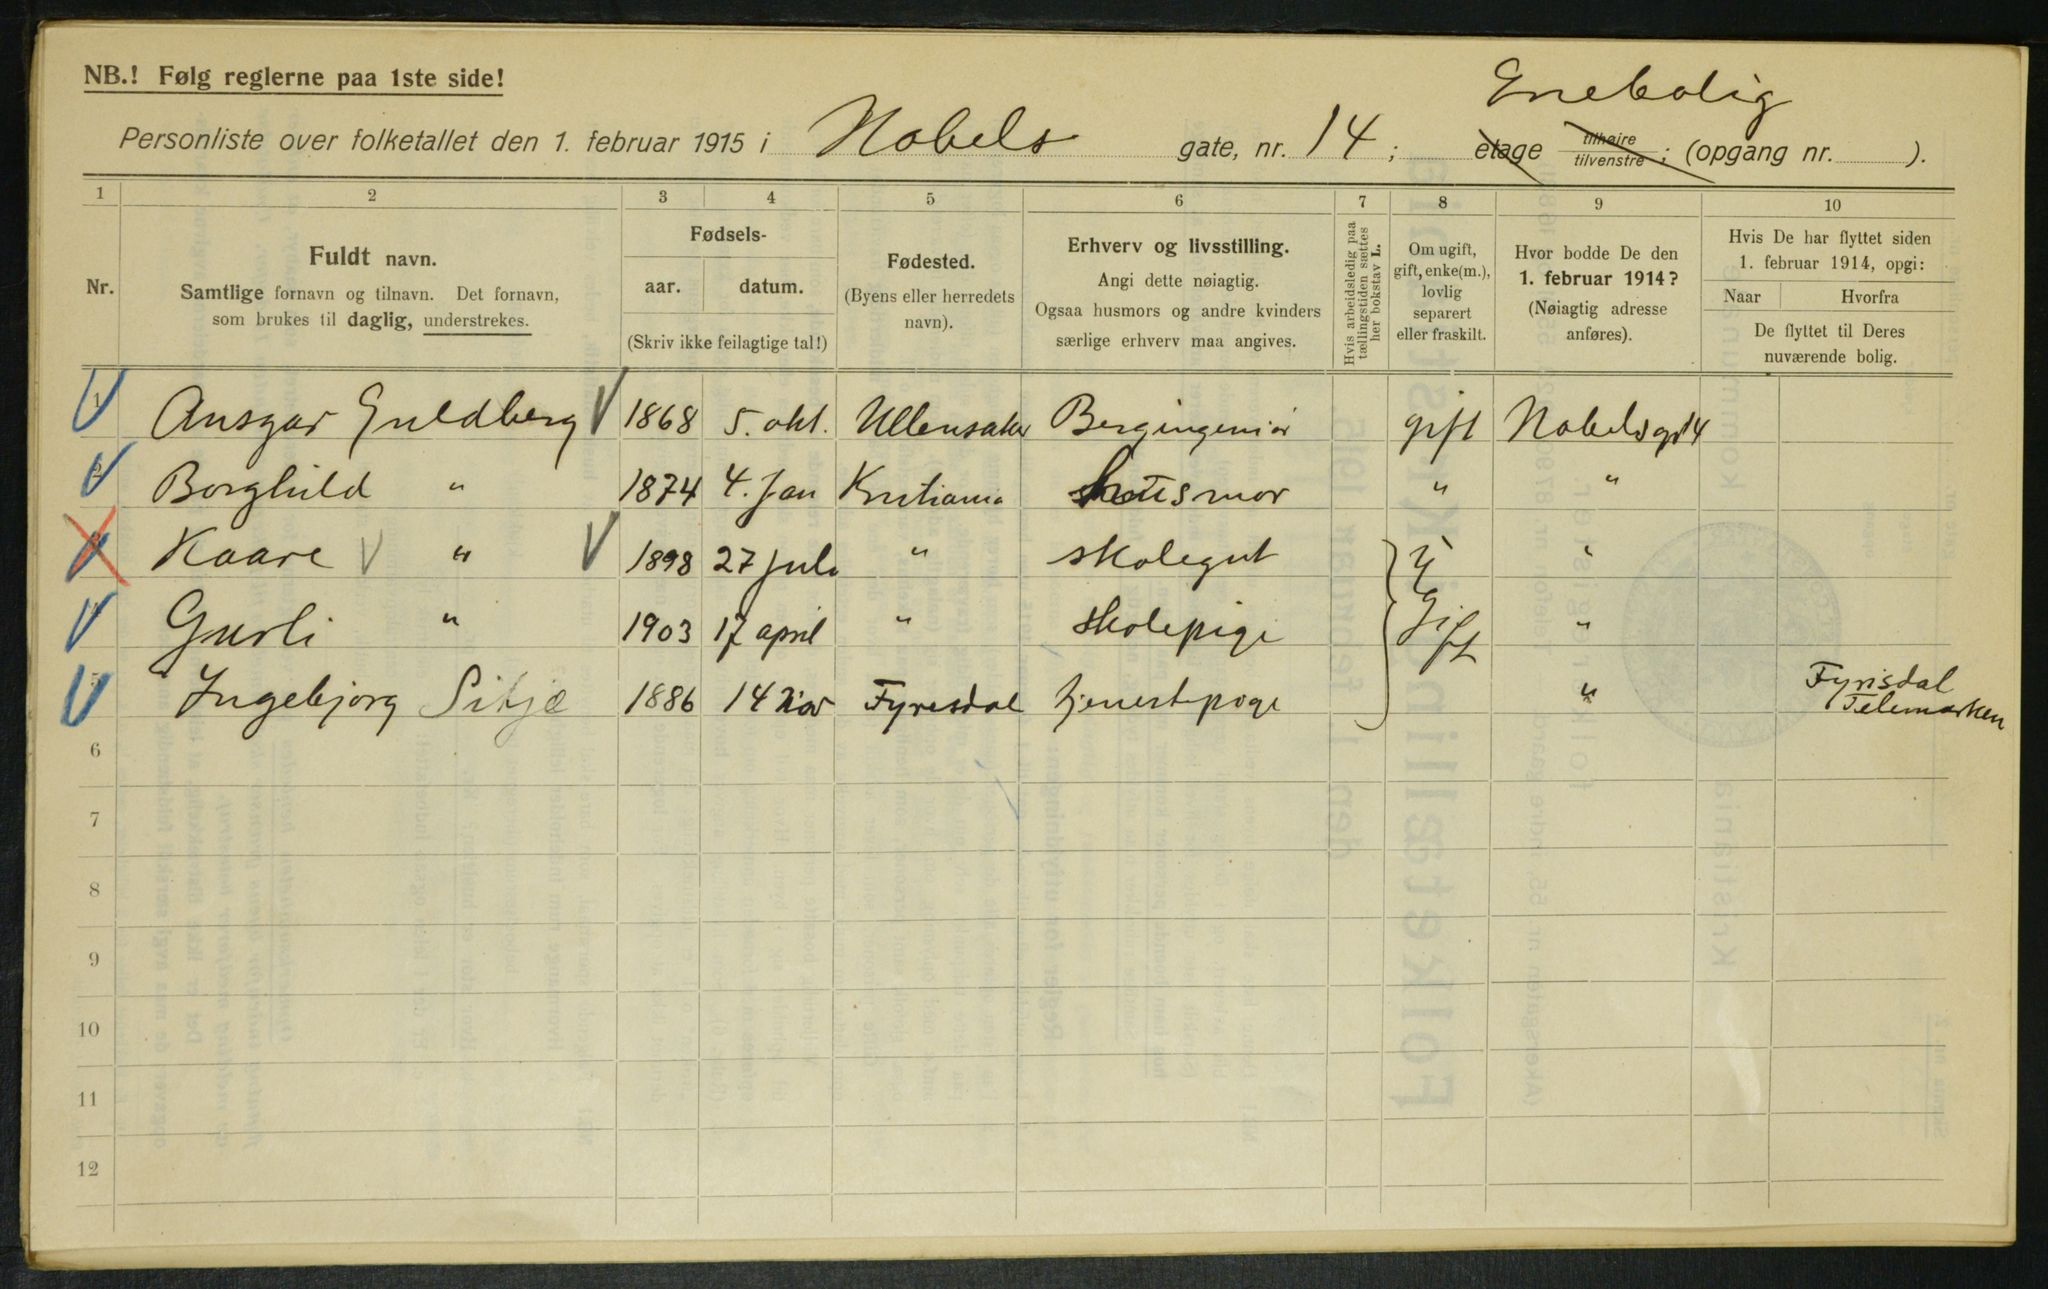 NB.! Følg reglerne paa 1ste side!
Enebolig
Personliste over folketallet den 1. februar 1915 i Nobels gate, nr. 14; etage tilhøire tilvenstre; (opgang nr. ).
1 2 3 4 5 6 7 8 9 10
Nr.
Fuldt navn.
Samtlige fornavn og tilnavn. Det fornavn,
som brukes til daglig, understrekes.
Fødsels-
aar. datum.
(Skriv ikke feilagtige tal!)
Fødested.
(Byens eller herredets
navn).
Erhverv og livsstilling.
Angi dette nøiagtig.
Ogsaa husmors og andre kvinders
særlige erhverv maa angives.
Hvis arbeidsledig paa
tællingstiden sættes
her bokstav L.
Om ugift,
gift, enke(m.),
lovlig
separert
eller fraskilt.
Hvor bodde De den
1. februar 1914?
(Nøiagtig adresse
anføres).
Hvis De har flyttet siden
1. februar 1914, opgi:
Naar Hvorfra
De flyttet til Deres
nuværende bolig.
1 Ansgar Guldberg 1868 5. okt. Ullensaker Bergingeniør gift Nobelsgt 14
2 Borghild " 1874 4. Jan Kristiania husmor " "
3 Kaare " 1898 27 Juli " skolegut u "
4 Gurli " 1903 17 april " skolepige gift "
5 Ingebjørg Sitje 1886 14 Nov Fyresdal tjenestpige " Fyrisdal
Telemarken
6
7
8
9
10
11
12